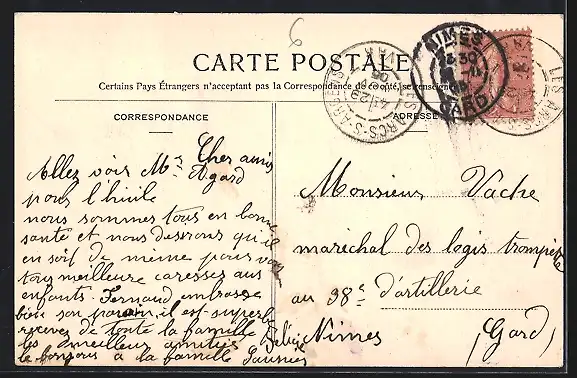 6
CARTE POSTALE
Certains Pays Étrangers n'acceptant pas la Correspondance de ce côté, se renseigner
CORRESPONDANCE
ADRESSE
NIMES
GARD
LES ARCS-S-ARGENS
LES ARCS
Cher amis
Allez voir Mr Agard
pour l'huile
nous sommes tous en bonne
santé et nous desirons qu'il
en soit de même pour vous
tous meilleure caresses aux
enfants. Fernand embrasse
bien son parrain, il est superbe
recevez de toute la famille
les meilleurs amitiés Felicie
le bonjour à la famille
Monsieur Vache
maréchal des logis trompette
au 38e d'artillerie
Nimes
(Gard)